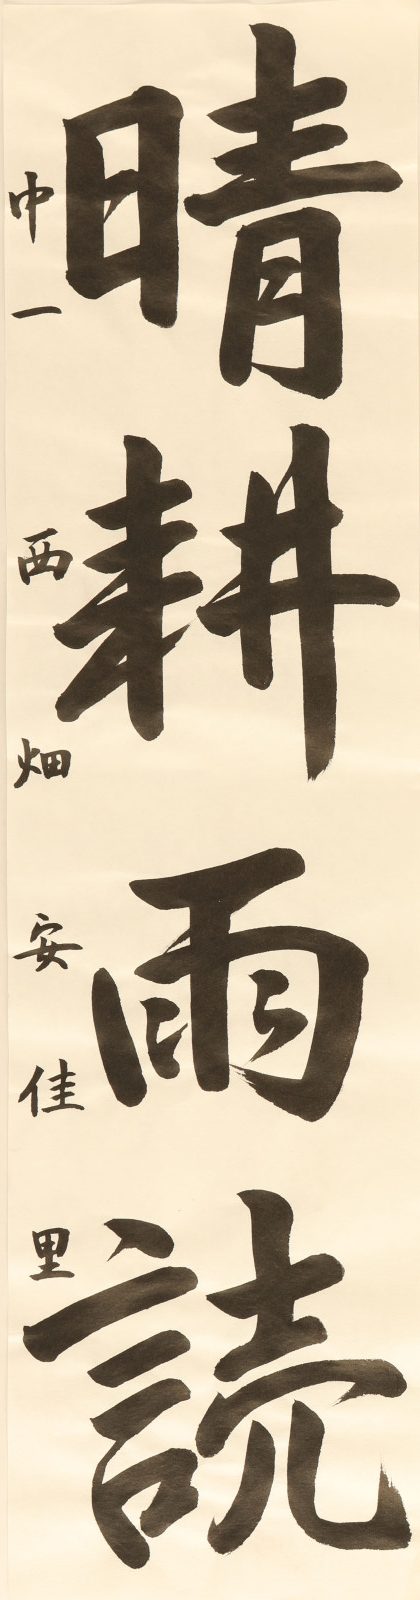 晴耕雨読
中一 西畑安佳里